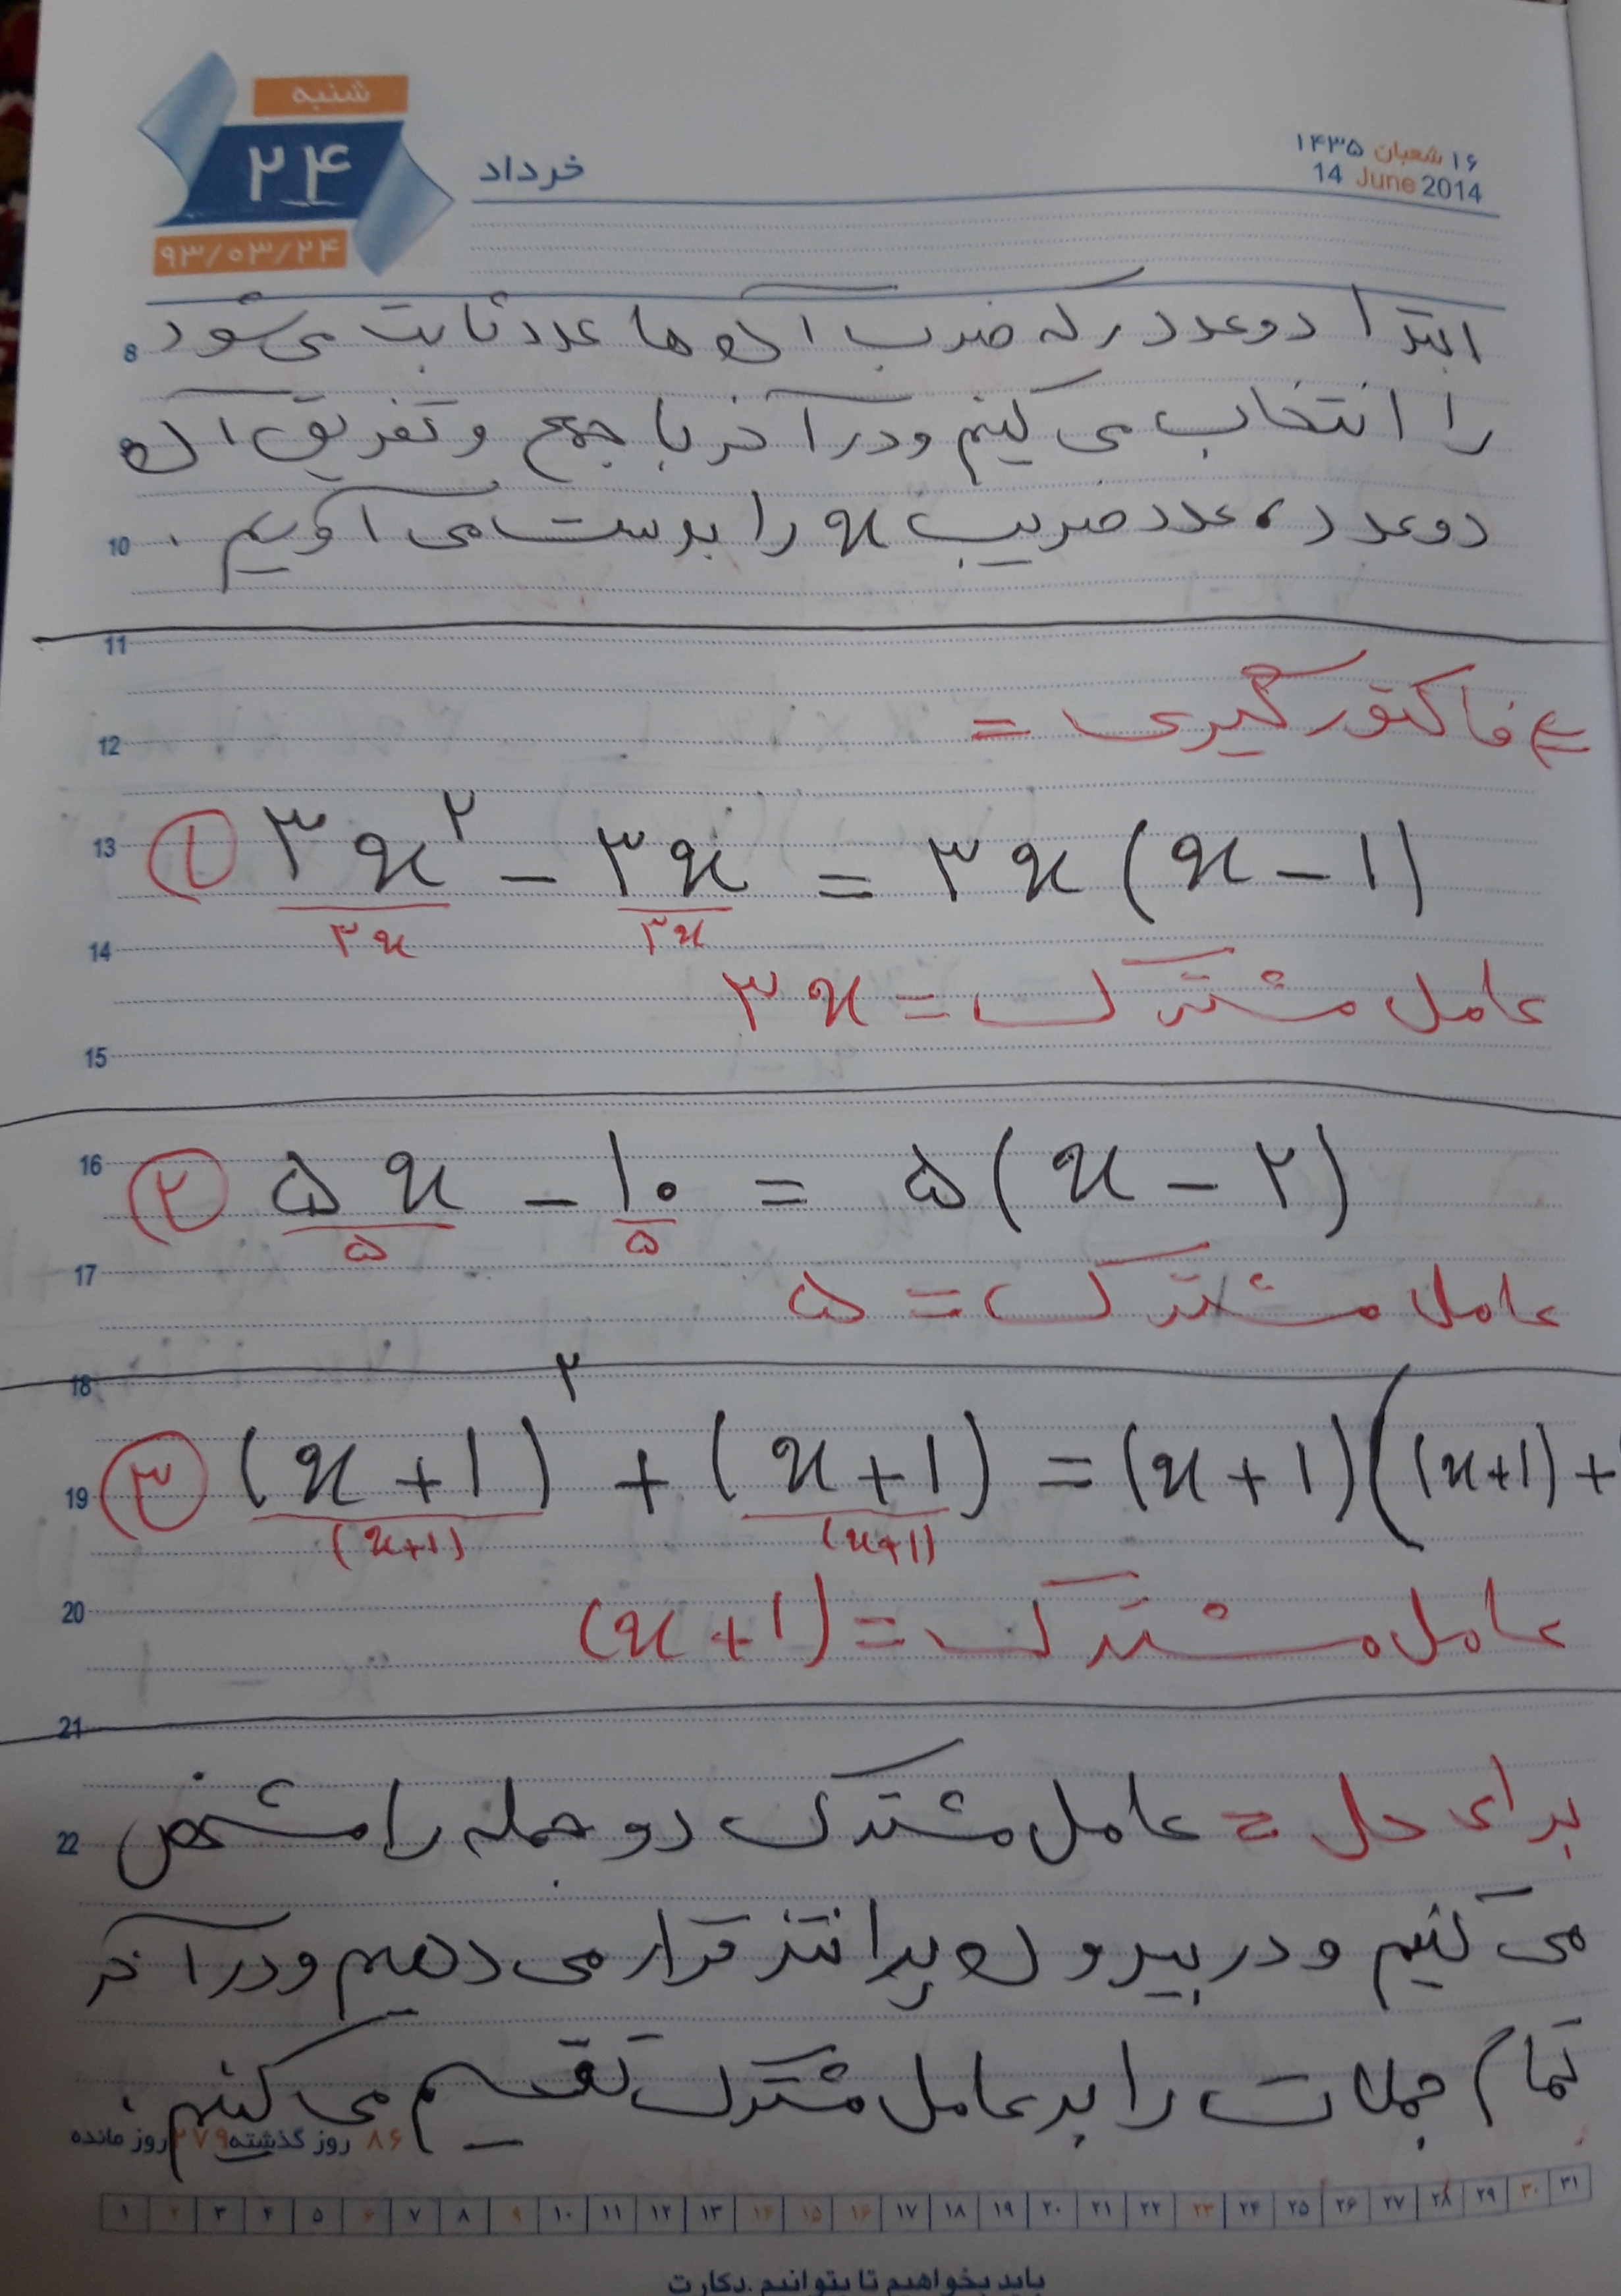 شنبه
۲۴
خرداد
۱۶ شعبان ۱۴۳۵
14 June 2014
۹۳/۰۳/۲۴
8 ابتدا دو عدد که ضرب آن ها عدد ثابت می شود
9 را انتخاب می کنیم و در آخر با جمع و تفریق آن
10 دو عدد، عدد ضریب x را بدست می آوریم.
11
12 فاکتورگیری =
13 ۱ ۳x^۲ - ۳x = ۳x (x - ۱)
۳x ۳x
14
عامل مشترک = ۳x
15
16 ۲ ۵x - ۱۰ = ۵(x - ۲)
۵ ۵
17 عامل مشترک = ۵
18
19 ۳ (x + ۱)^۲ + (x + ۱) = (x + ۱)((x+۱) +
(x+۱) (x+۱)
20 عامل مشترک = (x + ۱)
21
22 برای حل = عامل مشترک دو جمله را مشخص
می کنیم و در بیرون پرانتز قرار می دهیم و در آخر
تمام جملات را بر عامل مشترک تقسیم می کنیم.
۸۶ روز گذشته ۲۷۹ روز مانده
۱ ۲ ۳ ۴ ۵ ۶ ۷ ۸ ۹ ۱۰ ۱۱ ۱۲ ۱۳ ۱۴ ۱۵ ۱۶ ۱۷ ۱۸ ۱۹ ۲۰ ۲۱ ۲۲ ۲۳ ۲۴ ۲۵ ۲۶ ۲۷ ۲۸ ۲۹ ۳۰ ۳۱
باید بخواهیم تا بتوانیم. دکارت